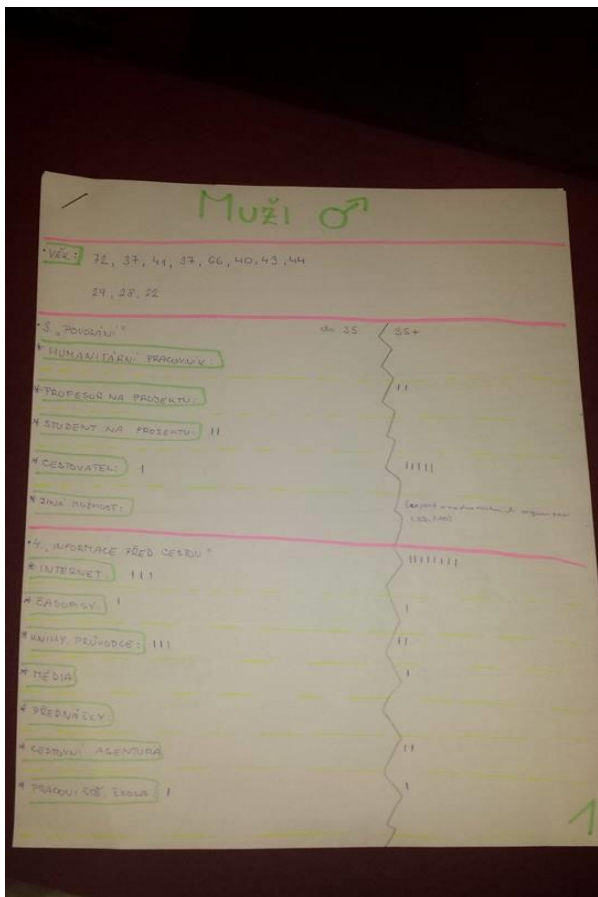 Muži ♂
• VĚK: 72, 37, 41, 37, 66, 40, 43, 44
29, 28, 22
• 3. „POVOLÁNÍ" do 35 35+
* HUMANITÁRNÍ PRACOVNÍK:
* PROFESOR NA PROJEKTU: II
* STUDENT NA PROJEKTU: II
* CESTOVATEL: I IIIII
* JINÁ MOŽNOST:
• 4. „INFORMACE PŘED CESTOU"
* INTERNET: III IIIIIIII
* ČASOPISY: I I
* KNIHY, PRŮVODCE: III II
* MÉDIA I
* PŘEDNÁŠKY
* CESTOVNÍ AGENTURA II
* PRACOVNÍ ŠKOLA: I I
1